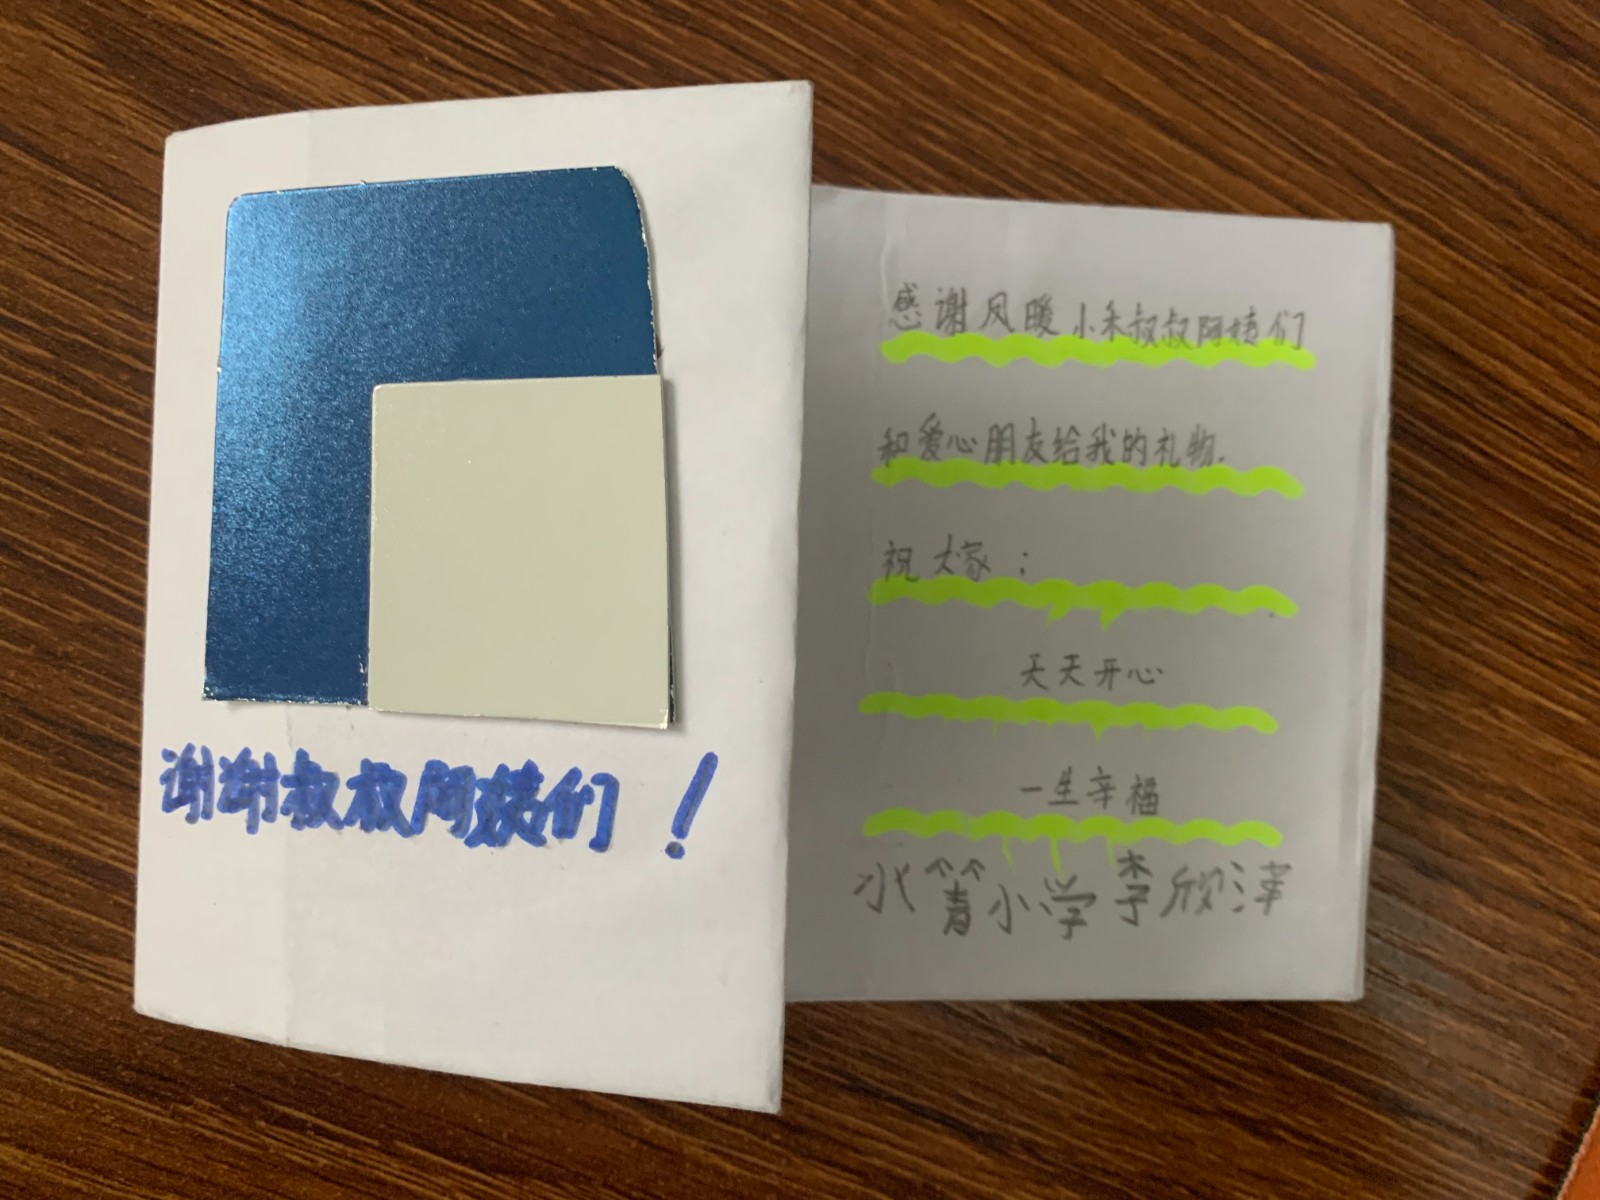 谢谢叔叔阿姨们！
感谢风暖小禾叔叔阿姨们
和爱心朋友给我的礼物.
祝大家：
天天开心
一生辛福
水箐小学李欣泽